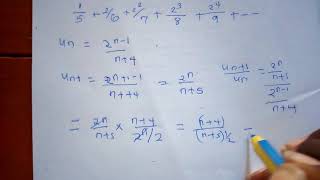 1/5 + 2/6 + 2²/7 + 2³/8 + 2⁴/9 + ---
un = 2ⁿ⁻¹/n+4
un+1 = 2ⁿ⁺¹⁻¹/n+1+4 = 2ⁿ/n+5
un+1/un = 2ⁿ/n+5 / 2ⁿ⁻¹/n+4
= 2ⁿ/n+5 × n+4/2ⁿ/2 = (n+4)/(n+5)1/2 =